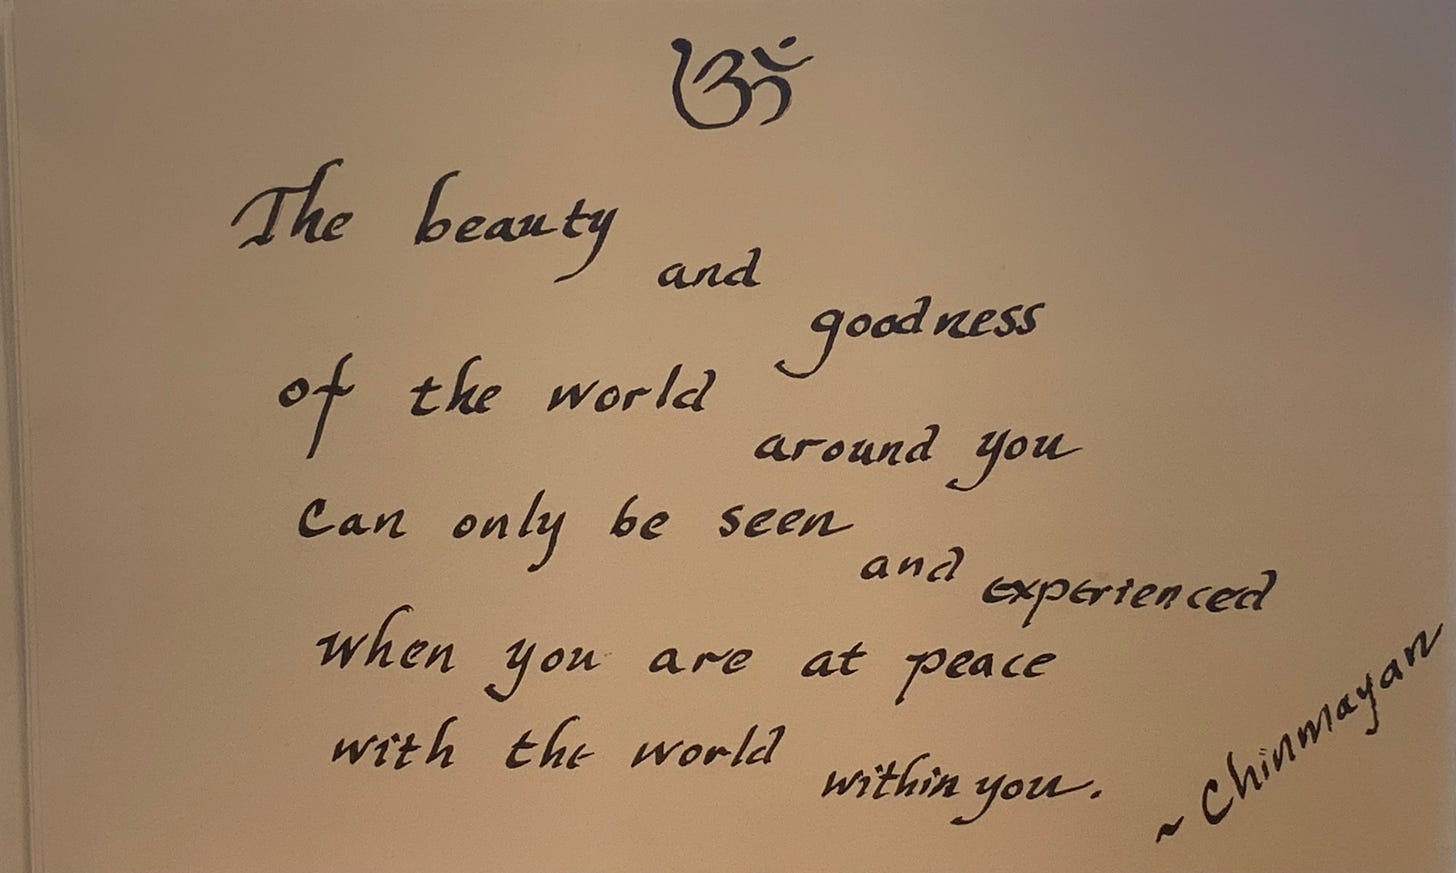 ॐ
The beauty
and
goodness
of the world
around you
can only be seen
and experienced
when you are at peace
with the world
within you.
~ Chinmayan